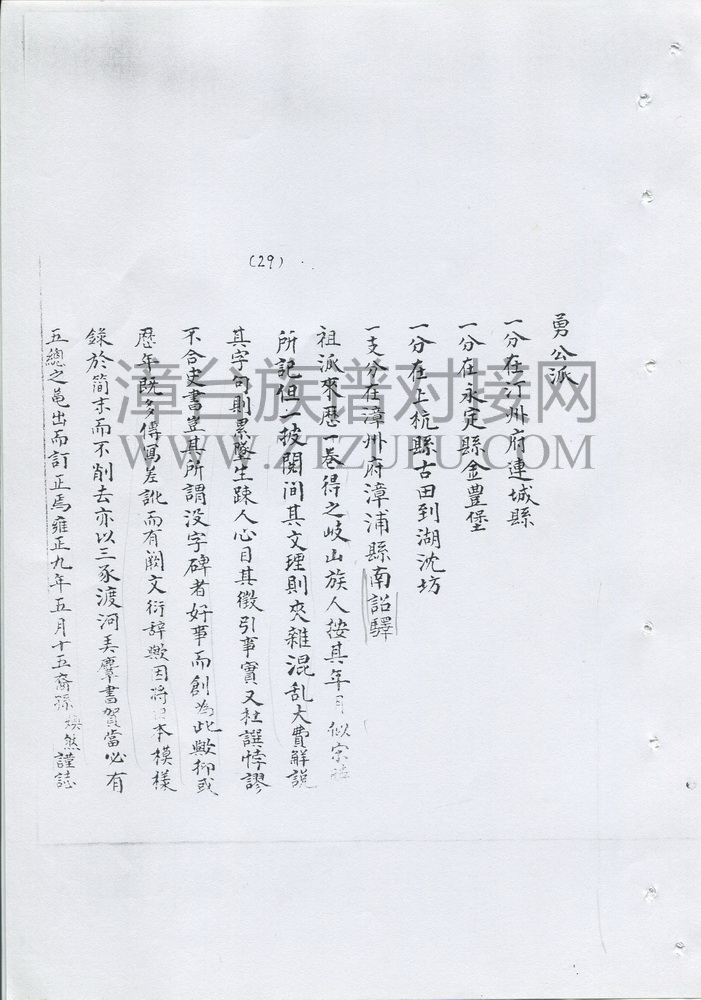 (29)
勇公派
一分在汀州府連城縣
一分在永定縣金豊堡
一分在上杭縣古田到湖沈坊
一支分在漳州府漳浦縣南詔驛
祖派來歷一卷得之岐山族人按其年月似宗
所記但一披閱间其文理則夾雜混乱大費觧説
其字句則累墜生踈人心目其徵引事實又杜譔悖謬
不合史書豈其所謂没字碑者好事而創為此歟抑或
歴年既多傳寫差訛而有闕文衍辞歟因將本模樣
錄於简末而不削去亦以三豕渡河羙羣書賀當必有
五總之黽出而訂正焉雍正九年五月十五裔孫煥然謹誌
漳台族谱对接网
WWW.ZTZUPU.COM